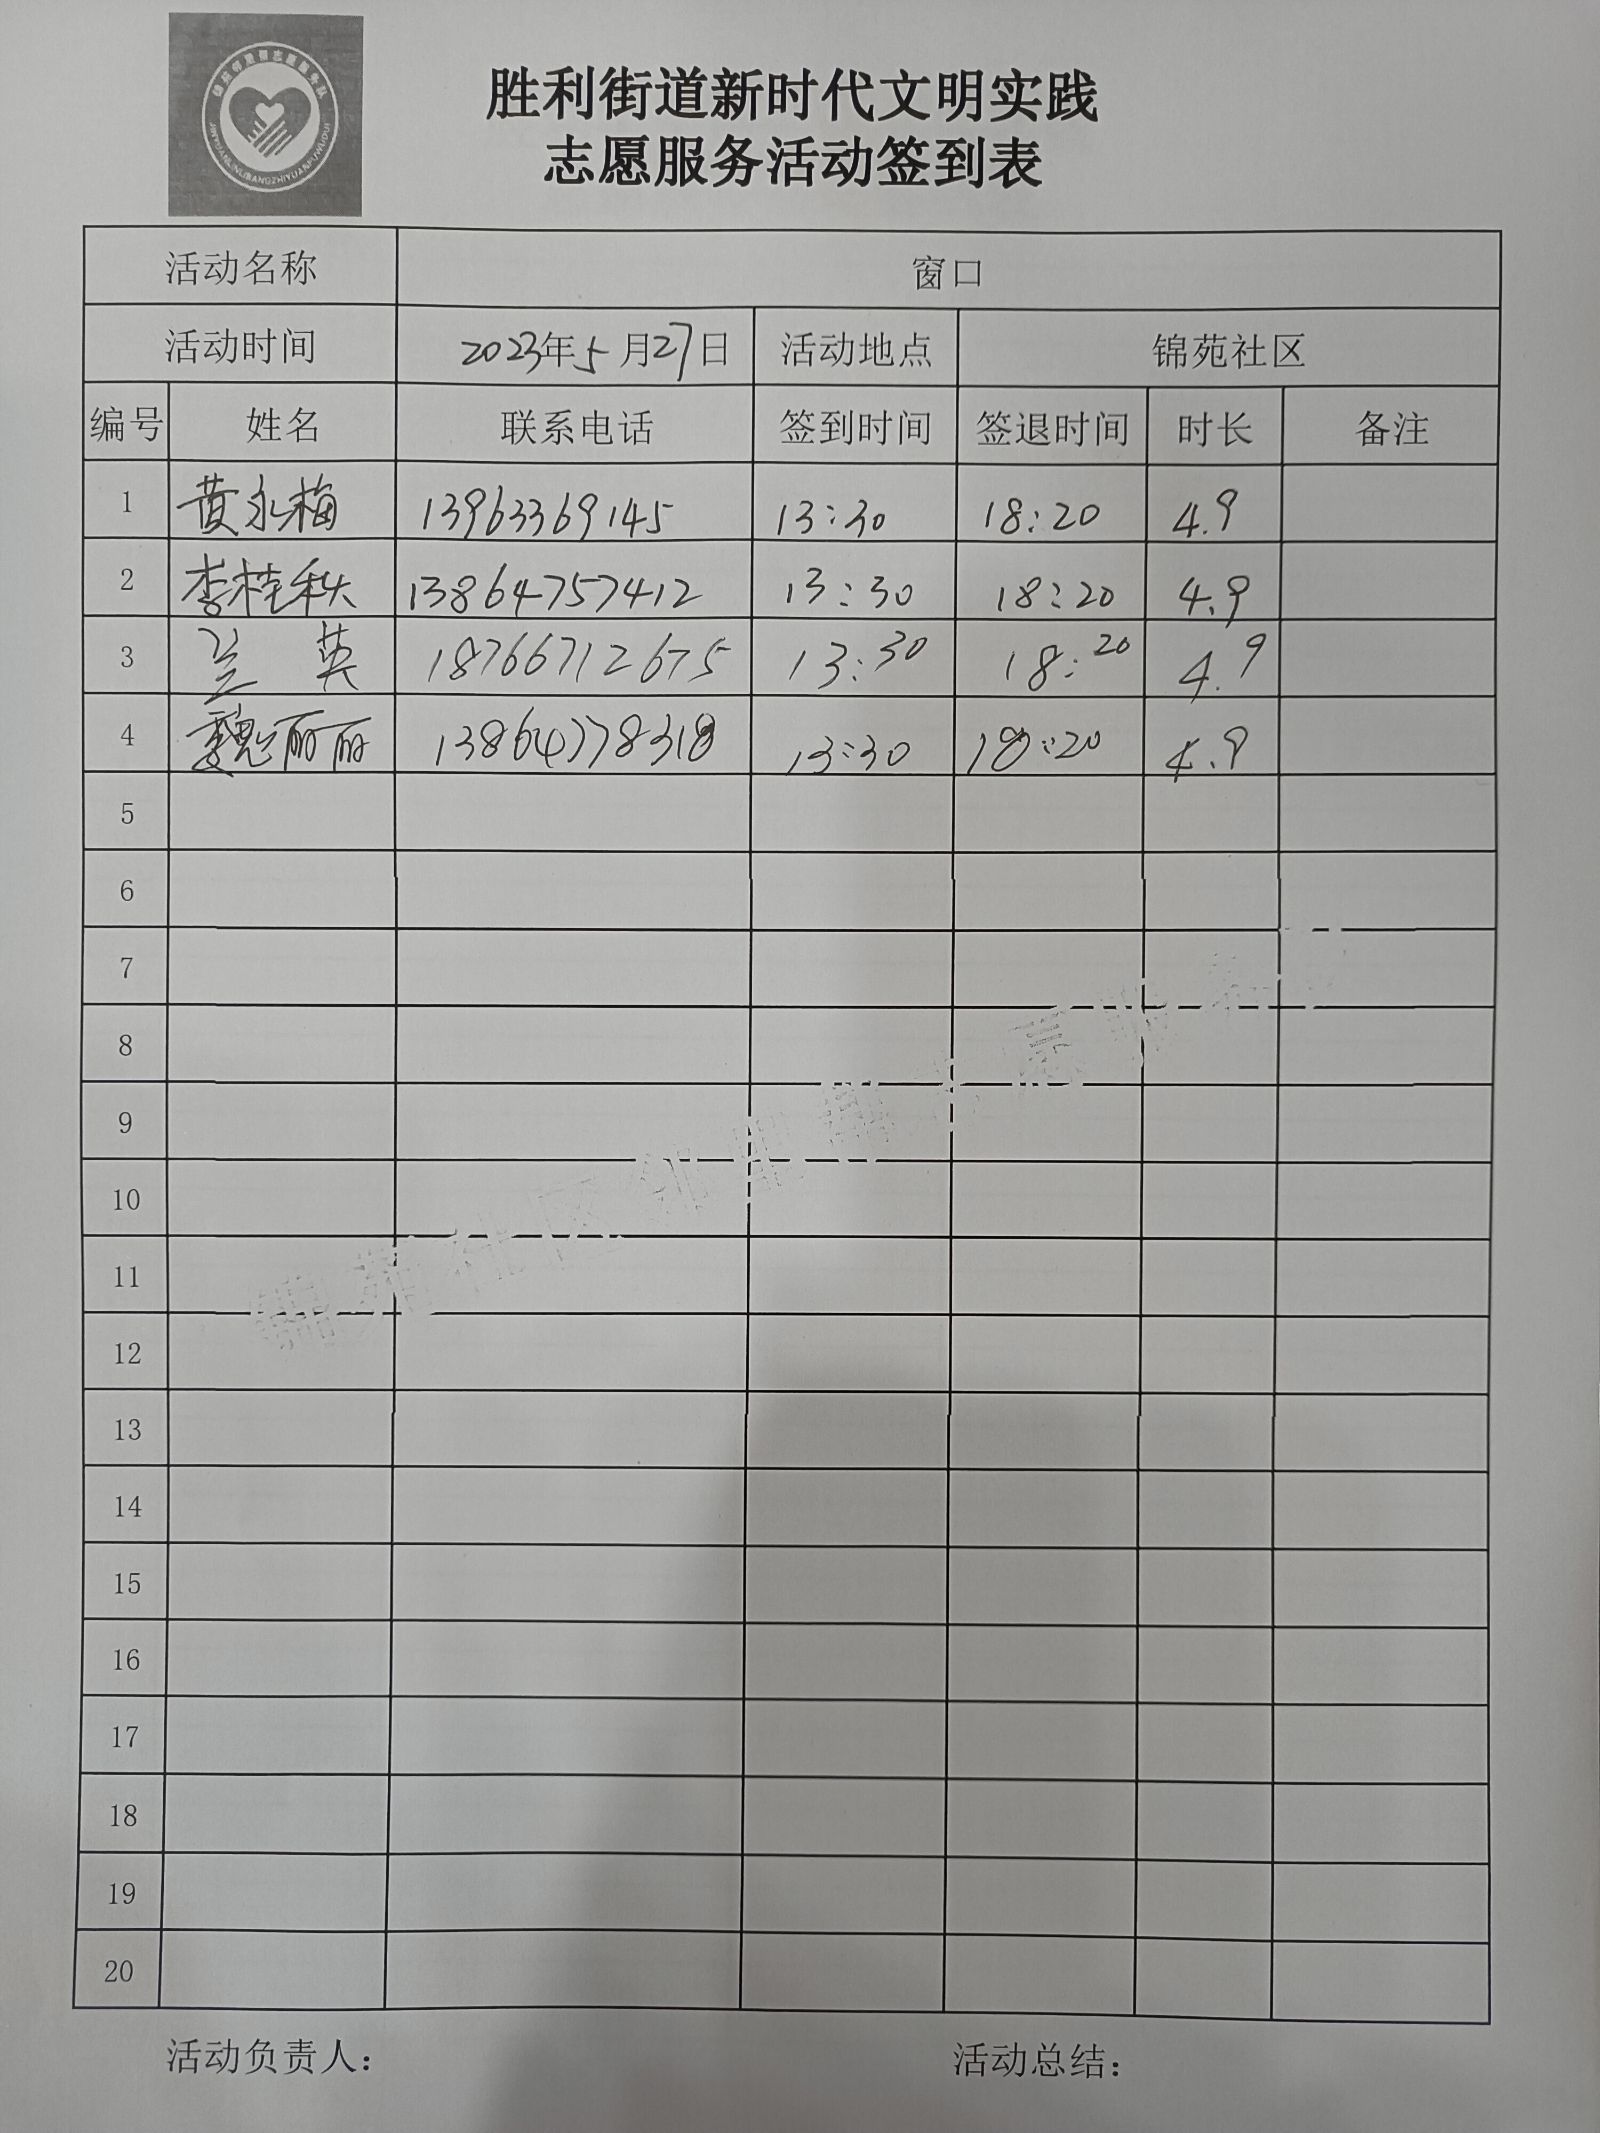 锦苑邻里帮志愿服务队
JINYUANLINLIBANGZHIYUANFUWUDUI
胜利街道新时代文明实践
志愿服务活动签到表
活动名称 窗口
活动时间 2023年5月27日 活动地点 锦苑社区
编号 姓名 联系电话 签到时间 签退时间 时长 备注
1 黄永梅 13963369145 13:30 18:20 4.9
2 李桂秋 13864757412 13:30 18:20 4.9
3 兰英 18766712675 13:30 18:20 4.9
4 魏丽丽 13864778318 13:30 18:20 4.9
5
6
7
8
9
10
11
12
13
14
15
16
17
18
19
20
锦苑社区邻里帮志愿服务
活动负责人： 活动总结：